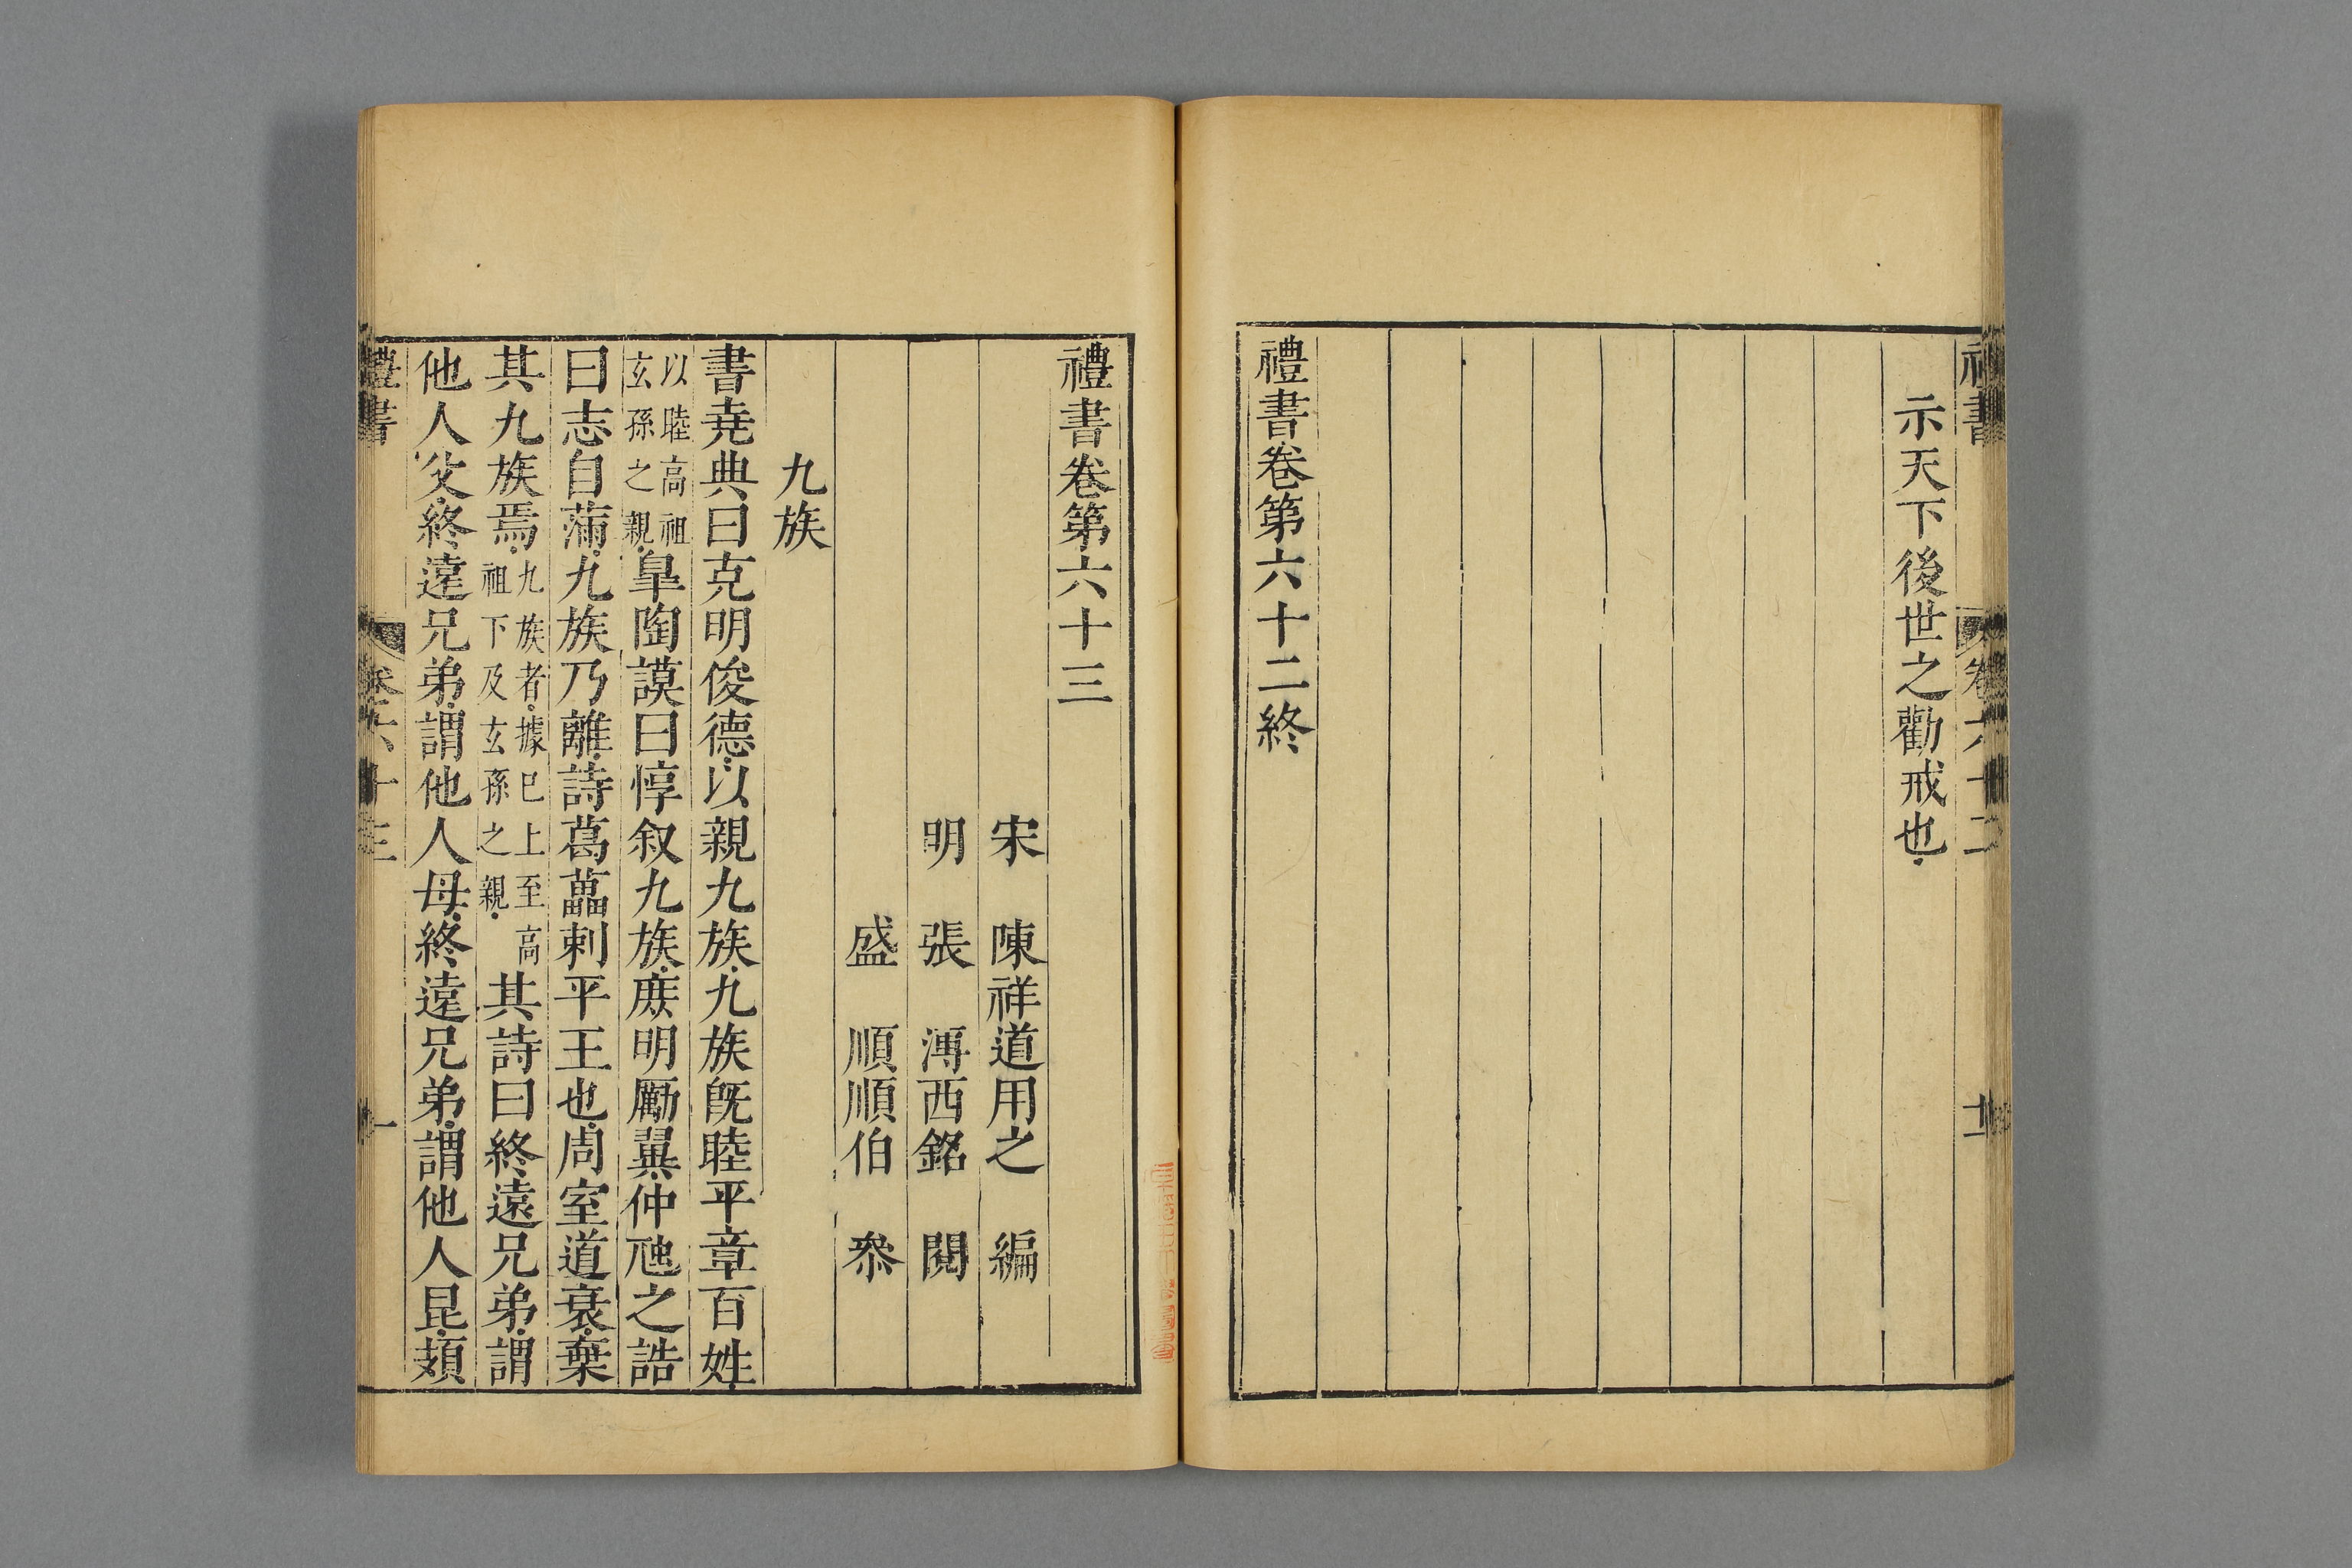 示天下後世之勸戒也
禮書卷第六十二終
禮書卷第六十三
宋 陳祥道用之 編
明 張 溥西銘 閱
盛 順順伯 叅
九族
書堯典曰克明俊德以親九族九族既睦平章百姓
以睦高祖
玄孫之親
臯陶謨曰惇叙九族庶明勵翼仲虺之誥
曰志自滿九族乃離詩葛藟刺平王也周室道衰棄
其九族焉
九族者據已上至高
祖下及玄孫之親
其詩曰終遠兄弟謂
他人父終遠兄弟謂他人母終遠兄弟謂他人昆頍
禮書 卷六十三 一